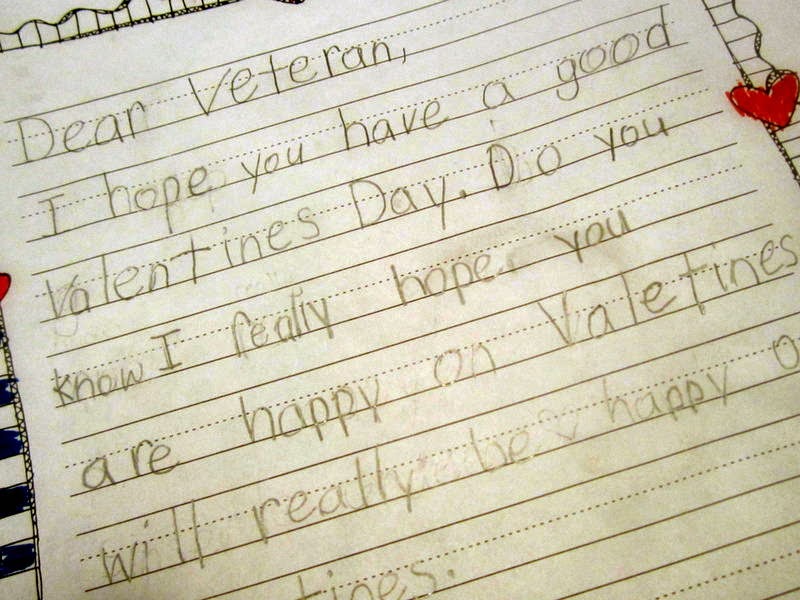 Dear Veteran,
I hope you have a good
Valentines Day. Do you
know I really hope you
are happy on Valetines
will really be happy
tines.